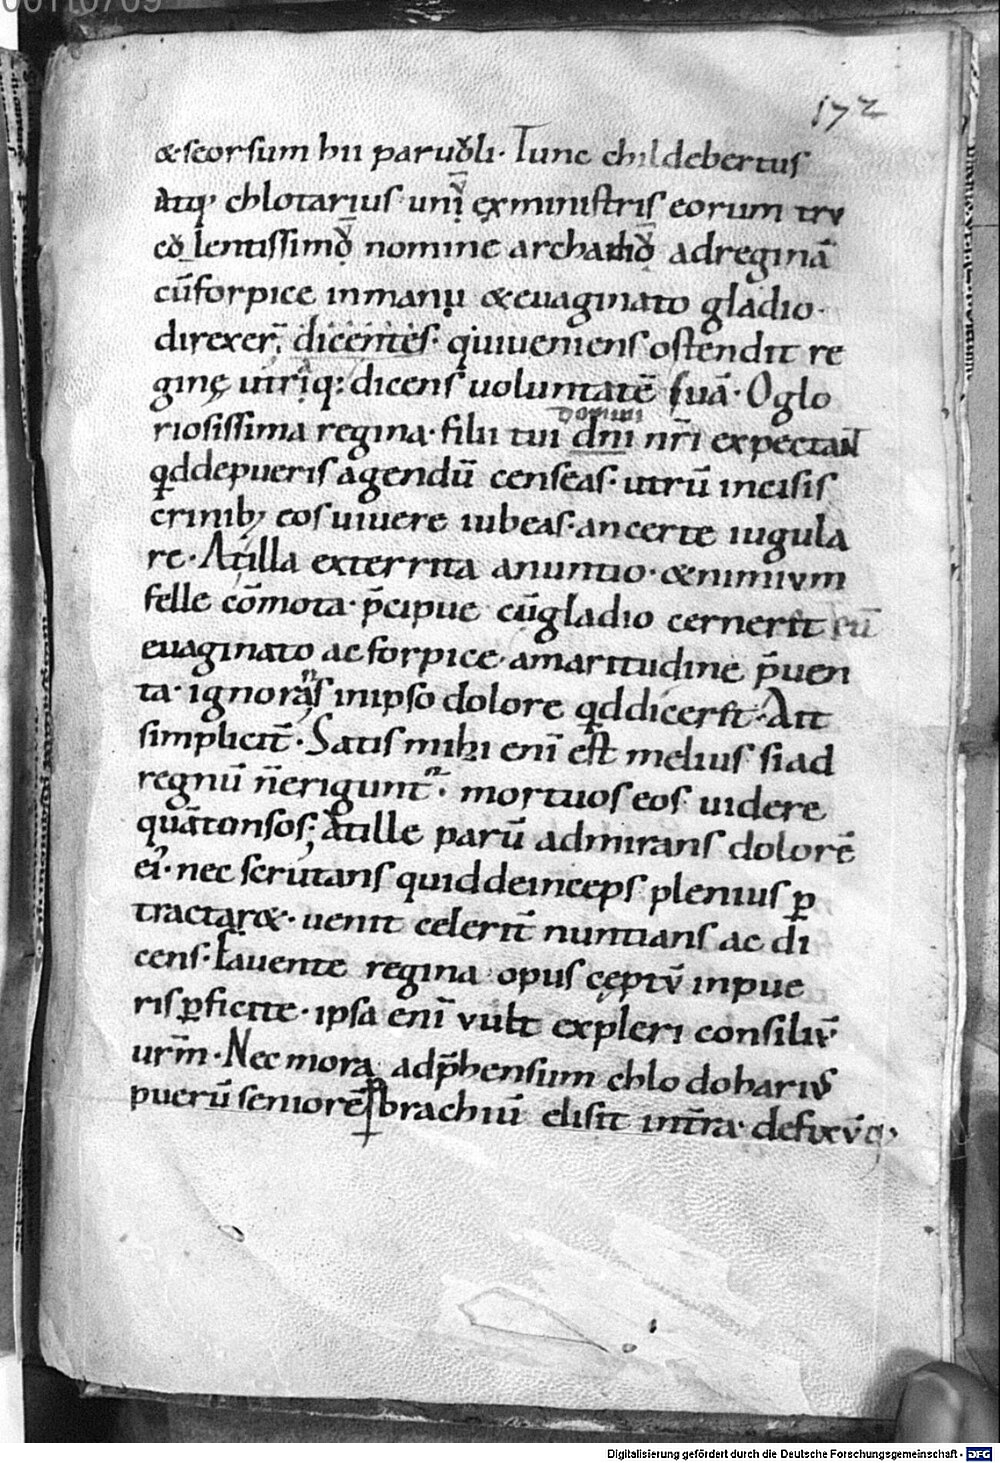 172
&seorsum hii paruoli. Tunc childebertus
atq; chlotarius unū exministris eorum tru
culentissimū nomine archadiū adreginā
cūforpice inmanu &euaginato gladio.
direxer̄ dicentes. quiueniens ostendit re
ginę utrāq: dicens uoluntatē suā. Oglo
riosissima regina. filii tui dñi nr̄i expectant
domini
qd depueris agendū censeas. utrū incisis
crinib; eos uiuere iubeas. ancerte iugula
re. Atilla exterrita anuntio. &nimium
felle cōmota. p̄cipue cūgladio cernerēt
euaginato ac forpice. amaritudine p̄uen
ta. ignorans inipso dolore qd dicerēt. Ait
simplicit̄. Satis mihi enī est melius siad
regnū n̄eriguntr̄. mortuos eos uidere
quātonsos; atille parū admirans dolorē
ei'. nec scrutans quiddeinceps plenius p
tractar&. uenit celerit̄ nuntians ac di
cens. fauente regina opus cęptū inpue
ris pficite. ipsa enī uult expleri consiliū
urm̄. Nec mora adp̄hensum chlodoharius
puerū seniorē p brachiū elisit int̄ra. defixūq;
Digitalisierung gefördert durch die Deutsche Forschungsgemeinschaft - DFG